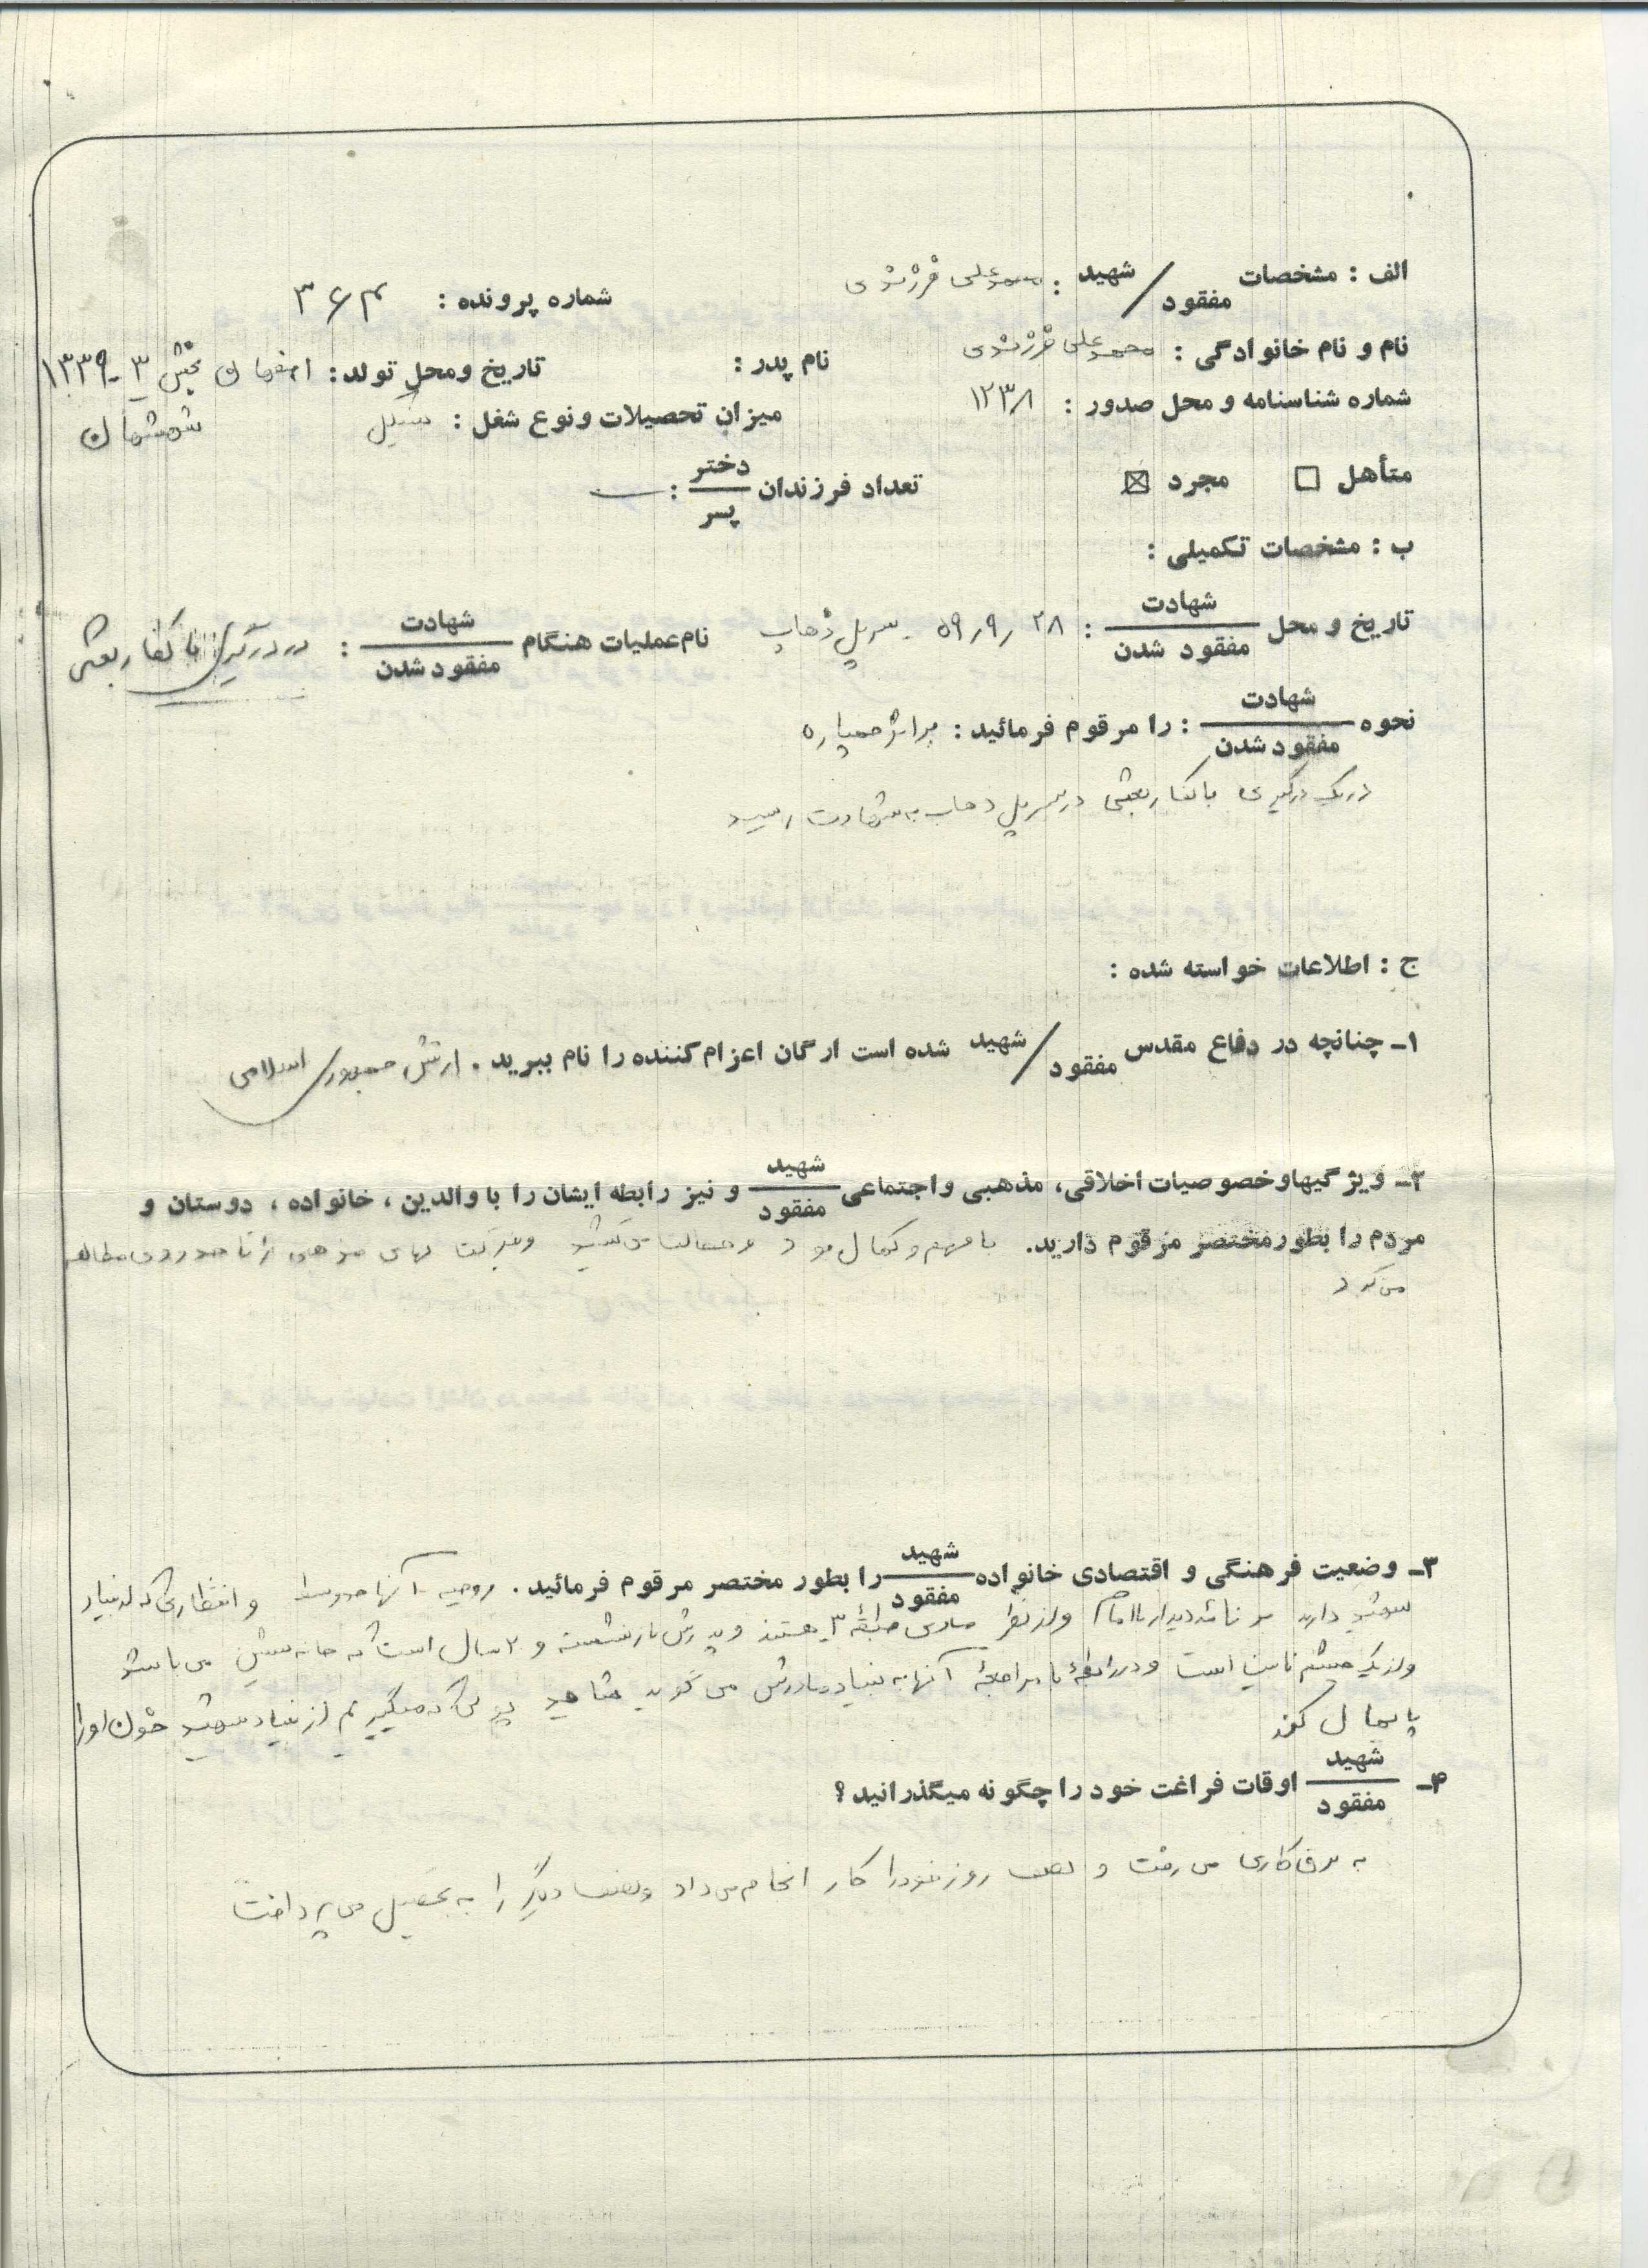 الف : مشخصات شهید / مفقود : محمد علی فرزندی شماره پرونده : ۳۶۴
نام و نام خانوادگی : محمد علی فرزندی نام پدر : تاریخ ومحل تولد : اصفهان بخش ۳ - ۱۳۳۹
شماره شناسنامه و محل صدور : ۱۲۳۸ میزان تحصیلات ونوع شغل :
متأهل □ مجرد ☒ تعداد فرزندان دختر / پسر : —
ب : مشخصات تکمیلی :
تاریخ و محل شهادت / مفقود شدن : ۵۹٫۹٫۲۸ - سرپل ذهاب نام عملیات هنگام شهادت / مفقود شدن : در درگیری با کفار بعثی
نحوه شهادت / مفقود شدن : را مرقوم فرمائید : براثر خمپاره
در یک درگیری با کفار بعثی در سرپل ذهاب به شهادت رسید
ج : اطلاعات خواسته شده :
۱ـ چنانچه در دفاع مقدس شهید / مفقود شده است ارگان اعزام کننده را نام ببرید . ارتش جمهوری اسلامی
۲ـ ویژگیهاوخصوصیات اخلاقی، مذهبی واجتماعی شهید / مفقود و نیز رابطه ایشان را با والدین ، خانواده ، دوستان و
مردم را بطورمختصر مرقوم دارید. با فهم و کمال بود و کتب های مذهبی را تا حدودی مطالعه
می کرد
۳ـ وضعیت فرهنگی و اقتصادی خانواده شهید / مفقود را بطور مختصر مرقوم فرمائید . روحیه آنها متوسط و انتظاری که از بنیاد
شهید دارند دیدار با امام و از نظر مادی طبقه ۳ هستند و پدرش بازنشسته و ۲ سال است که خانه نشین می باشد
و از یک چشم نابینا است و در رابطه با مراجعه آنها به بنیاد مادرش می گوید پولی که میگیریم از بنیاد شهید خون او را
پایمال کند
۴ـ شهید / مفقود اوقات فراغت خود را چگونه میگذرانید؟
به برق کاری می رفت و نصف روز خود را کار انجام می داد و نصف دیگر را به تحصیل می پرداخت